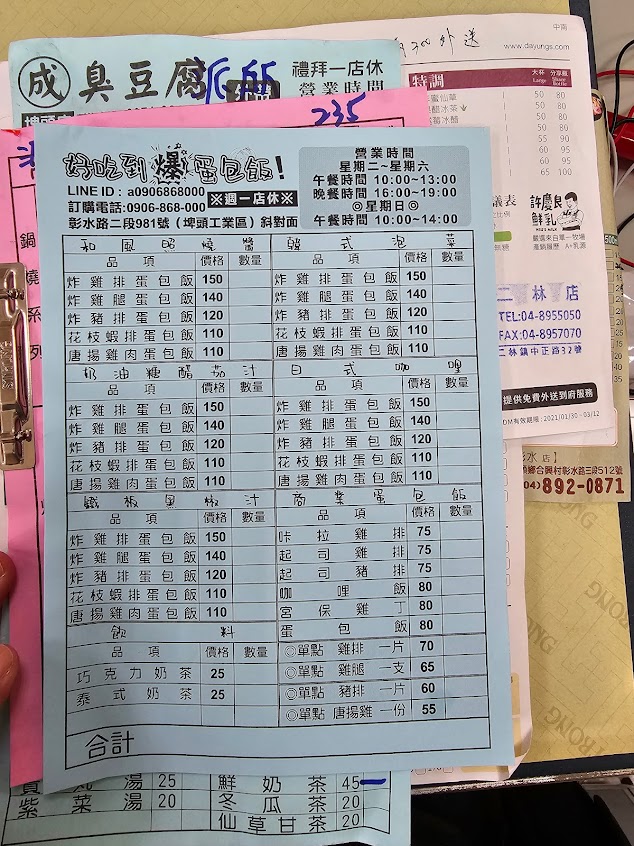 中南
外送
www.dayungs.com
成 臭豆腐
禮拜一店休
營業時間
235
特調
大杯 分享瓶
Large
50 80
50 80
50 80
55 90
60 95
60 95
65 100
好吃到爆蛋包飯!
LINE ID : a0906868000
訂購電話:0906-868-000
※週一店休※
彰水路二段981號（埤頭工業區）斜對面
營業時間
星期二~星期六
午餐時間 10:00~13:00
晚餐時間 16:00~19:00
◎星期日◎
午餐時間 10:00~14:00
許慶良
鮮乳
嚴選來自單一牧場
產銷履歷 A+乳源
林 店
TEL:04-8955050
FAX:04-8957070
二林鎮中正路32號
提供免費外送到府服務
DM有效期限：2021/01/30 - 03/12
彰水店】
鄉合興村彰水路三段512號
(04)892-0871
和風照燒醬
品項 價格 數量
炸雞排蛋包飯 150
炸雞腿蛋包飯 140
炸豬排蛋包飯 120
花枝蝦排蛋包飯 110
唐揚雞肉蛋包飯 110
韓式泡菜
品項 價格 數量
炸雞排蛋包飯 150
炸雞腿蛋包飯 140
炸豬排蛋包飯 120
花枝蝦排蛋包飯 110
唐揚雞肉蛋包飯 110
奶油糖醋茄汁
品項 價格 數量
炸雞排蛋包飯 150
炸雞腿蛋包飯 140
炸豬排蛋包飯 120
花枝蝦排蛋包飯 110
唐揚雞肉蛋包飯 110
日式咖哩
品項 價格 數量
炸雞排蛋包飯 150
炸雞腿蛋包飯 140
炸豬排蛋包飯 120
花枝蝦排蛋包飯 110
唐揚雞肉蛋包飯 110
鐵板黑椒汁
品項 價格 數量
炸雞排蛋包飯 150
炸雞腿蛋包飯 140
炸豬排蛋包飯 120
花枝蝦排蛋包飯 110
唐揚雞肉蛋包飯 110
商業蛋包飯
品項 價格 數量
咔拉雞排 75
起司雞排 75
起司豬排 75
咖哩飯 80
宮保雞丁 80
蛋包飯 80
◎單點 雞排 一片 70
◎單點 雞腿 一支 65
◎單點 豬排 一片 60
◎單點 唐揚雞 一份 55
飲料
品項 價格 數量
巧克力奶茶 25
泰式奶茶 25
合計
鍋
燒
系
列
丸湯 25
紫菜湯 20
鮮奶茶 45
冬瓜茶 20
仙草甘茶 20